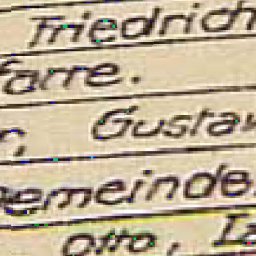 Friedrich
farre.
r, Gustav
gemeinde.
Otto, La